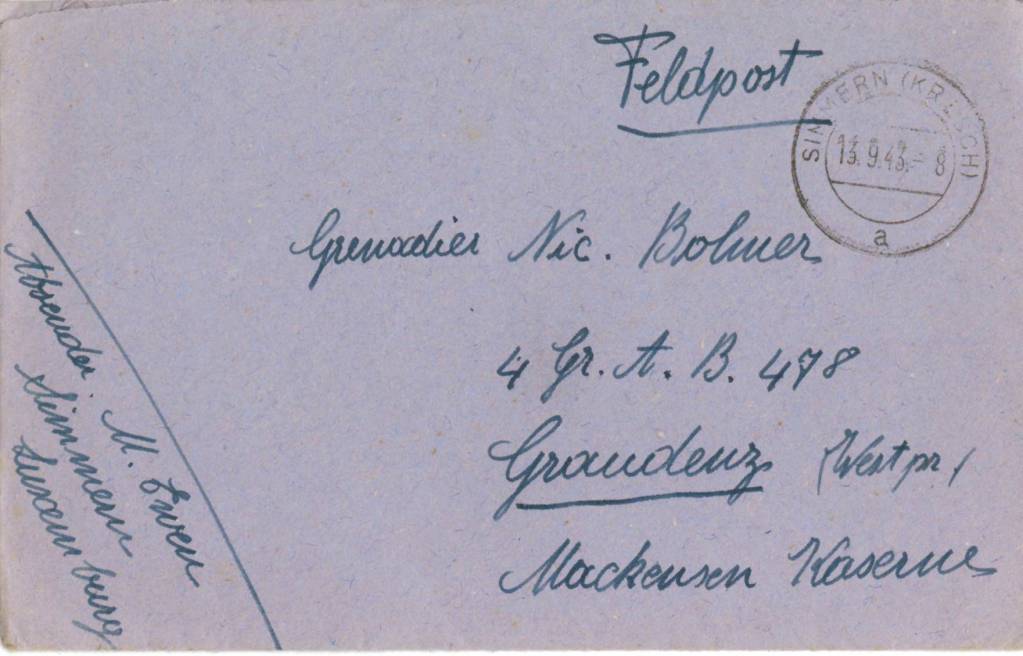 Feldpost
SIMMERN (KR. ESCH)
13.9.43.- 8
a
Grenadier Nic. Bohmer
4 Gr. A. B. 478
Graudenz (Westpr)
Mackensen Kaserne
Absender M. Ewen
Simmern
Luxemburg